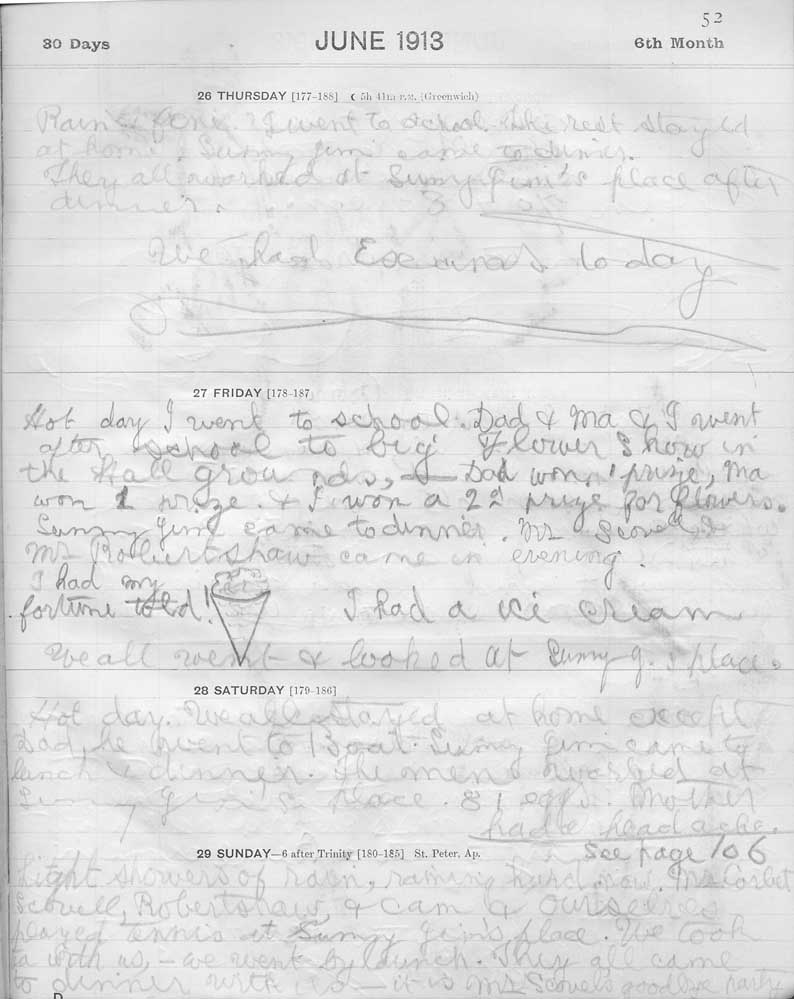 52
30 Days JUNE 1913 6th Month
26 THURSDAY [177-188] ☾ 5h 41m P.M. (Greenwich)
Rain & fine. I went to school. The rest stayed
at home. Sunny Jim came to dinner.
They all worked at Sunny Jim's place after
dinner.
We had Exams today
27 FRIDAY [178-187]
Hot day I went to school. Dad & Ma & I went
after school to big Flower Show in
the Hall grounds, Dad won 1 prize, Ma
won 1 prize. & I won a 2nd prize for flowers.
Sunny Jim came to dinner. Mr Scovell &
Mr Robertshaw came in evening.
I had my
fortune told! I had a ice cream
We all went & looked at Sunny J.'s place.
28 SATURDAY [179-186]
Hot day. We all stayed at home except
Dad, he went to Boat. Sunny Jim came to
lunch & dinner. The men worked at
Sunny Jim's place. 81 eggs. Mother
had a head ache.
See page 106
29 SUNDAY—6 after Trinity [180-185] St. Peter, Ap.
Light showers of rain, raining hard now. Mr Corbet
Scovell, Robertshaw, & Cam & ourselves
played tennis at Sunny Jim's place. We took
with us, – we went by launch. They all came
to dinner with us – it is Mr Scovels goodbye party